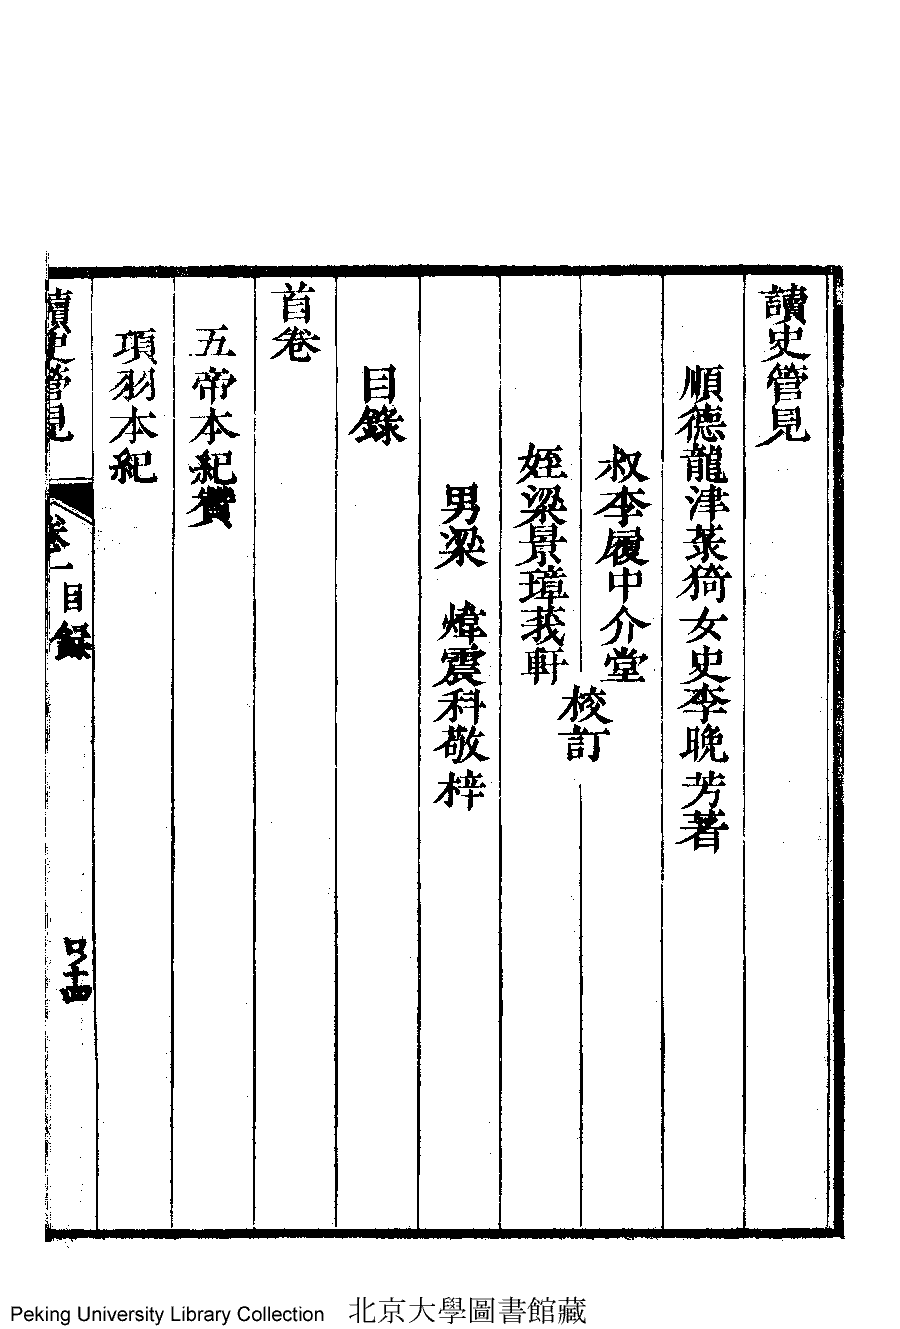 讀史管見
順德龍津菉猗女史李晚芳著
叔李履中介堂
姪梁景璋莪軒
校訂
男梁 煒震科敬梓
目錄
首卷
五帝本紀贊
項羽本紀
讀史管見 卷一 目錄
四十四
Peking University Library Collection 北京大學圖書館藏